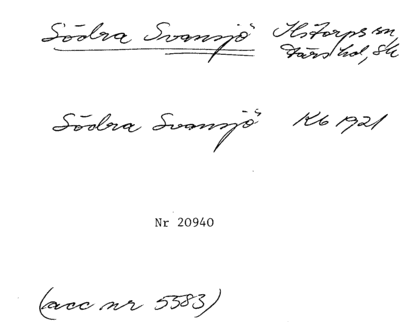 Södra Svansjö Ilstorps sn,
Färs hd, Sk
Södra Svansjö Kb 1921
Nr 20940
(acc nr 5583)